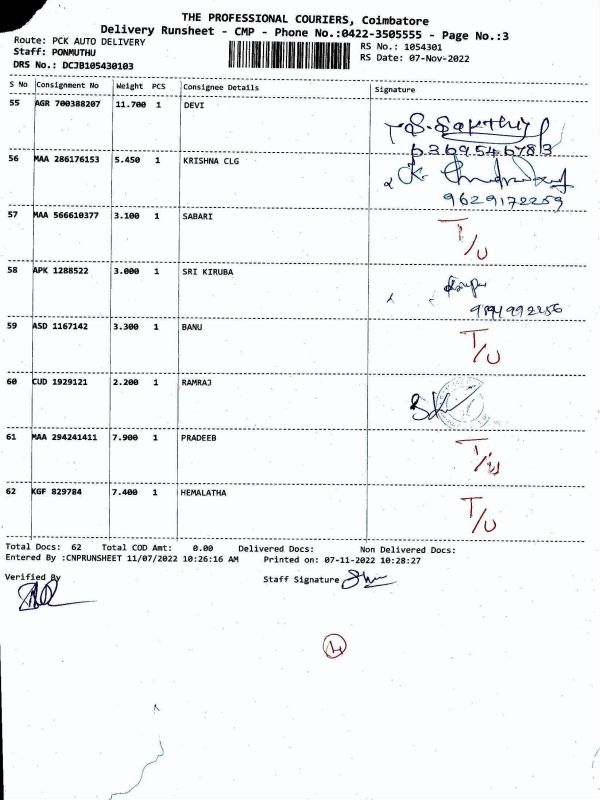 THE PROFESSIONAL COURIERS, Coimbatore
Delivery Runsheet - CMP - Phone No.:0422-3505555 - Page No.:3
Route: PCK AUTO DELIVERY
RS No.: 1054301
Staff: PONMUTHU
RS Date: 07-Nov-2022
DRS No.: DCJB105430103
S No Consignment No Weight PCS Consignee Details Signature
55 AGR 700388207 11.700 1 DEVI
6369546783
56 MAA 286176153 5.450 1 KRISHNA CLG
9629172259
57 MAA 566610377 3.100 1 SABARI T/U
58 APK 1288522 3.000 1 SRI KIRUBA
59 ASD 1167142 3.300 1 BANU T/U
60 CUD 1929121 2.200 1 RAMRAJ
61 MAA 294241411 7.900 1 PRADEEB T/U
62 KGF 829784 7.400 1 HEMALATHA T/U
Total Docs: 62 Total COD Amt: 0.00 Delivered Docs: Non Delivered Docs:
Entered By :CNPRUNSHEET 11/07/2022 10:26:16 AM Printed on: 07-11-2022 10:28:27
Verified By Staff Signature